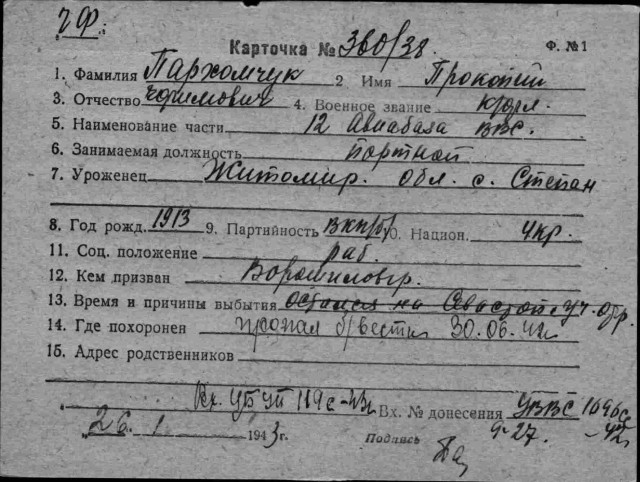 ЧФ.
Карточка № 3во/38. Ф. №1
1. Фамилия Пархомчук 2 Имя Прокопий
3. Отчество Ефимович 4. Военное звание кр.фл.
5. Наименование части 12 Авиабаза ВВС.
6. Занимаемая должность портной
7. Уроженец Житомир. обл. с. Степан
8. Год рожд. 1913 9. Партийность ВКП(б) 0. Национ. Укр.
11. Соц. положение раб.
12. Кем призван Ворошиловгр.
13. Время и причины выбытия остался на Севастоп. уч. обр.
14. Где похоронен пропал б/вести 30.06.42г
15. Адрес родственников
Вх. УБ УП 119с-43г
Вх. № донесения УВВС 1696с
26. 1 1943г. Подпись 9-27. -42г